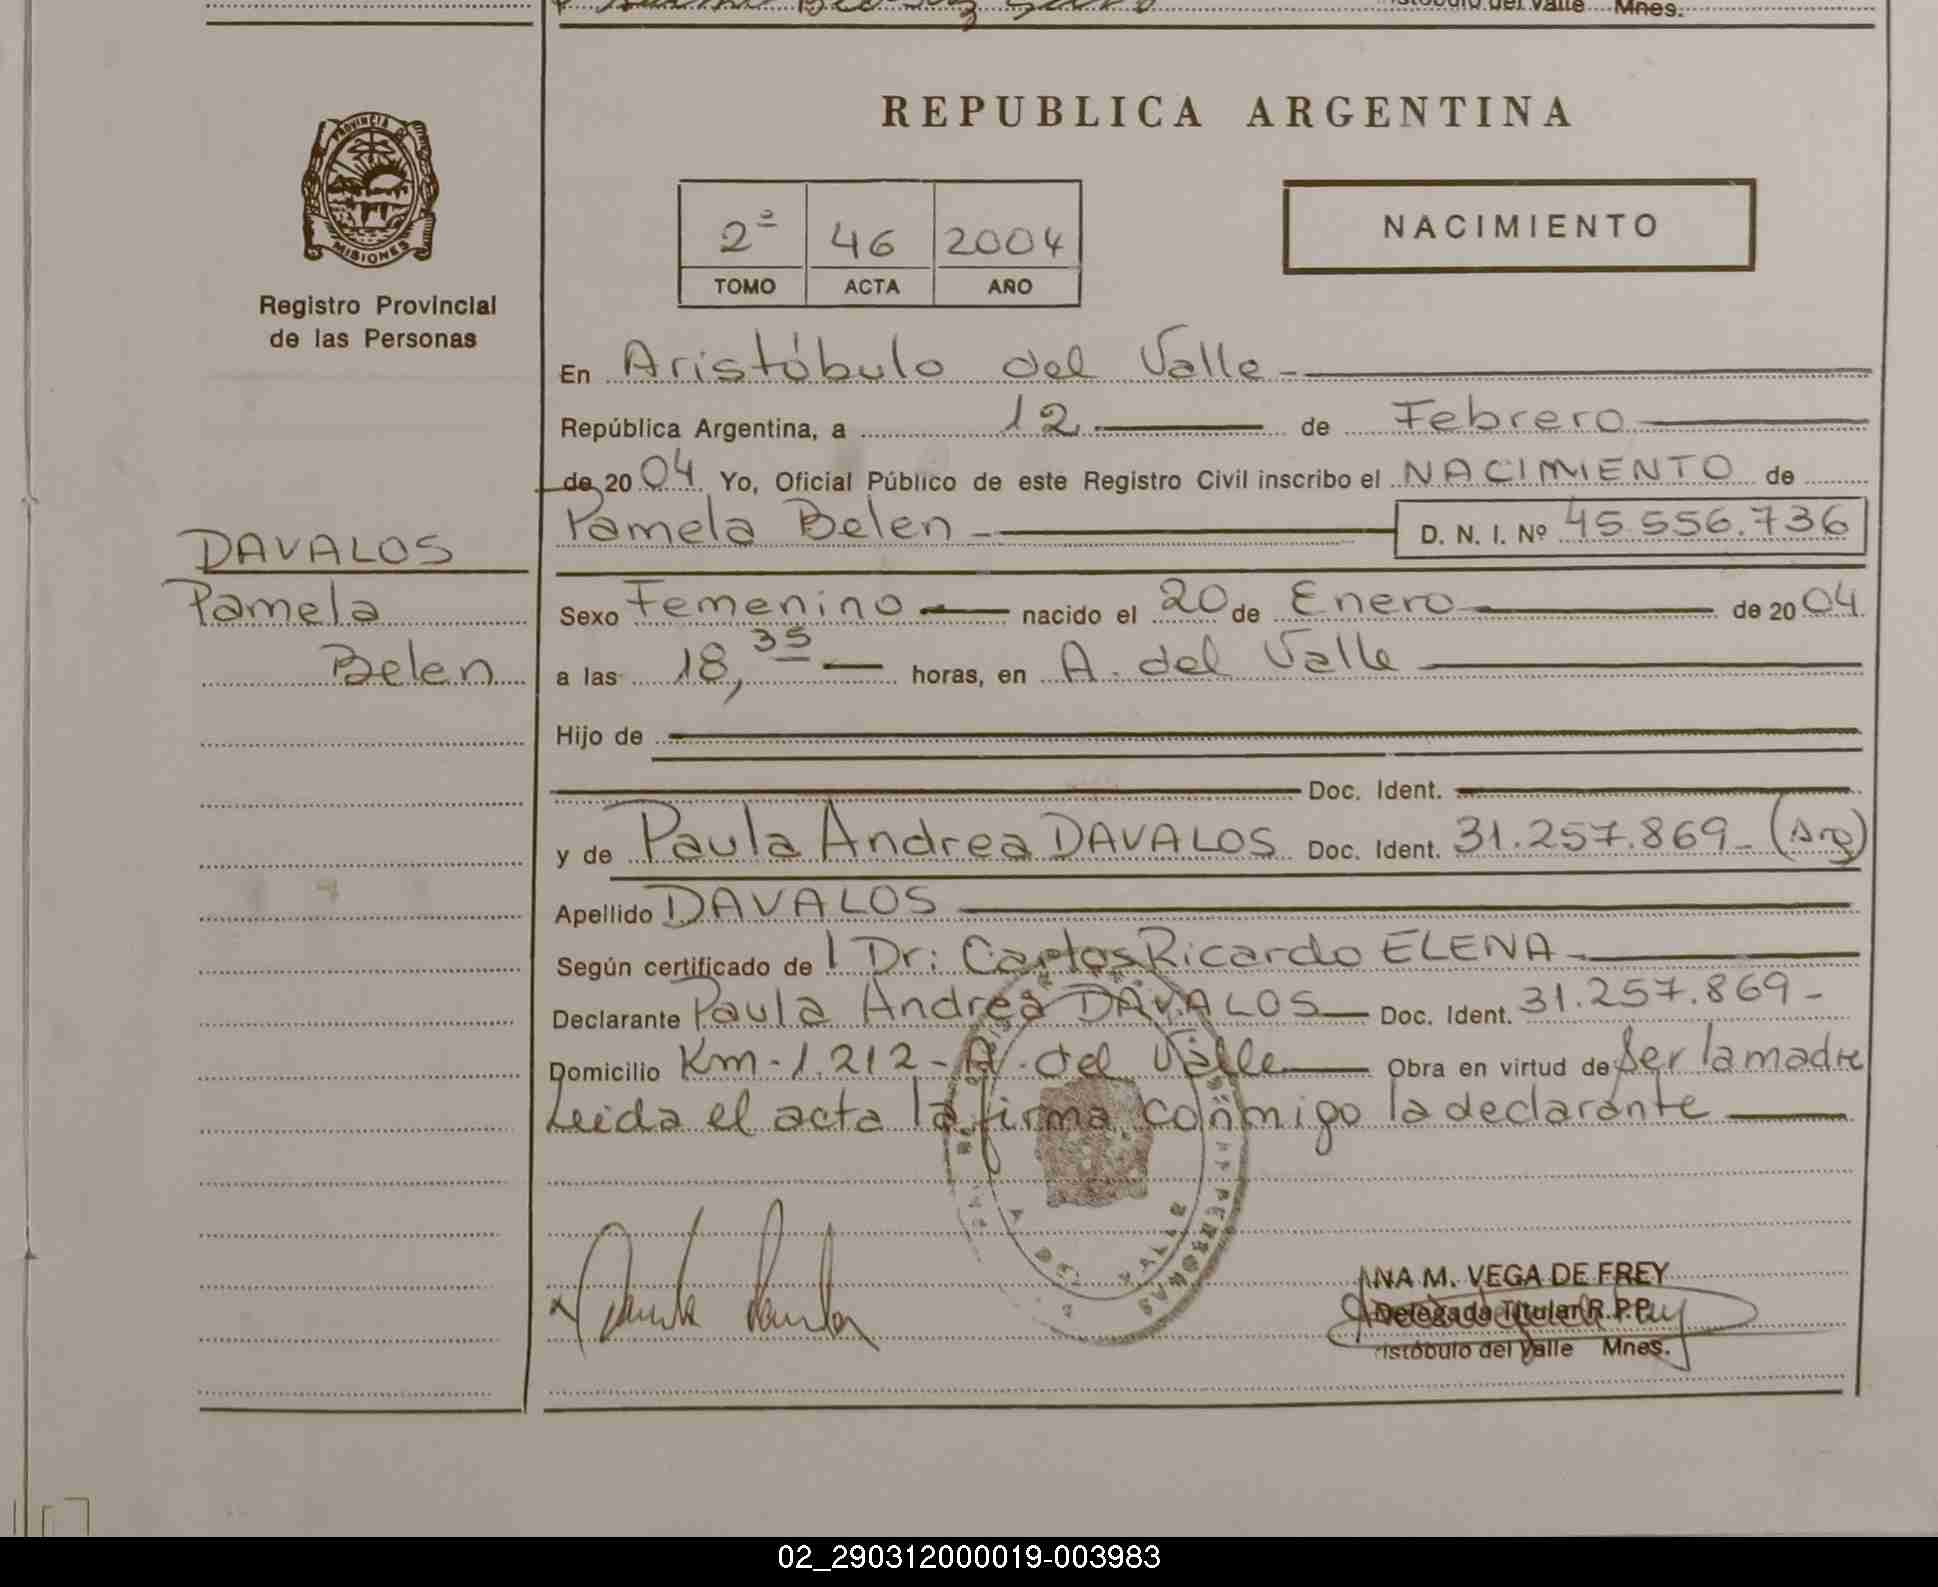 Mnes.
REPUBLICA ARGENTINA
PROVINCIA DE
MISIONES
Registro Provincial
de las Personas
2º 46 2004
TOMO ACTA AÑO
NACIMIENTO
En Aristóbulo del Valle
República Argentina, a 12 de Febrero
de 2004 Yo, Oficial Público de este Registro Civil inscribo el NACIMIENTO de
Pamela Belen D. N. I. Nº 45.556.736
DAVALOS
Pamela
Belen
Sexo Femenino nacido el 20 de Enero de 2004
a las 18,35 horas, en A. del Valle
Hijo de
Doc. Ident.
y de Paula Andrea DAVALOS Doc. Ident. 31.257.869- (Arg)
Apellido DAVALOS
Según certificado de l Dr: Carlos Ricardo ELENA
Declarante Paula Andrea DAVALOS Doc. Ident. 31.257.869-
Domicilio Km-1.212- A. del Valle Obra en virtud de Ser la madre
Leida el acta la firma conmigo la declarante
PERSONAS
ANA M. VEGA DE FREY
Delegada Titular R.P.P.
istóbulo del Valle Mnes.
02_290312000019-003983